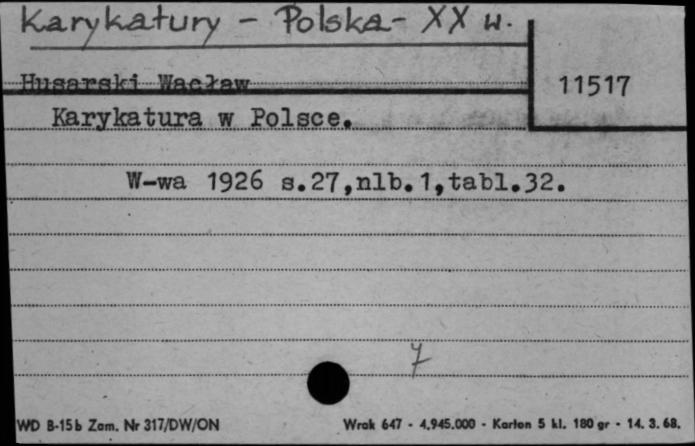 Karykatury - Polska - XX w.
Husarski Wacław
11517
Karykatura w Polsce.
W-wa 1926 s.27,nlb.1,tabl.32.
7
WD B-15b Zam. Nr 317/DW/ON
Wrak 647 - 4.945.000 - Karton 5 kl. 180 gr - 14. 3. 68.